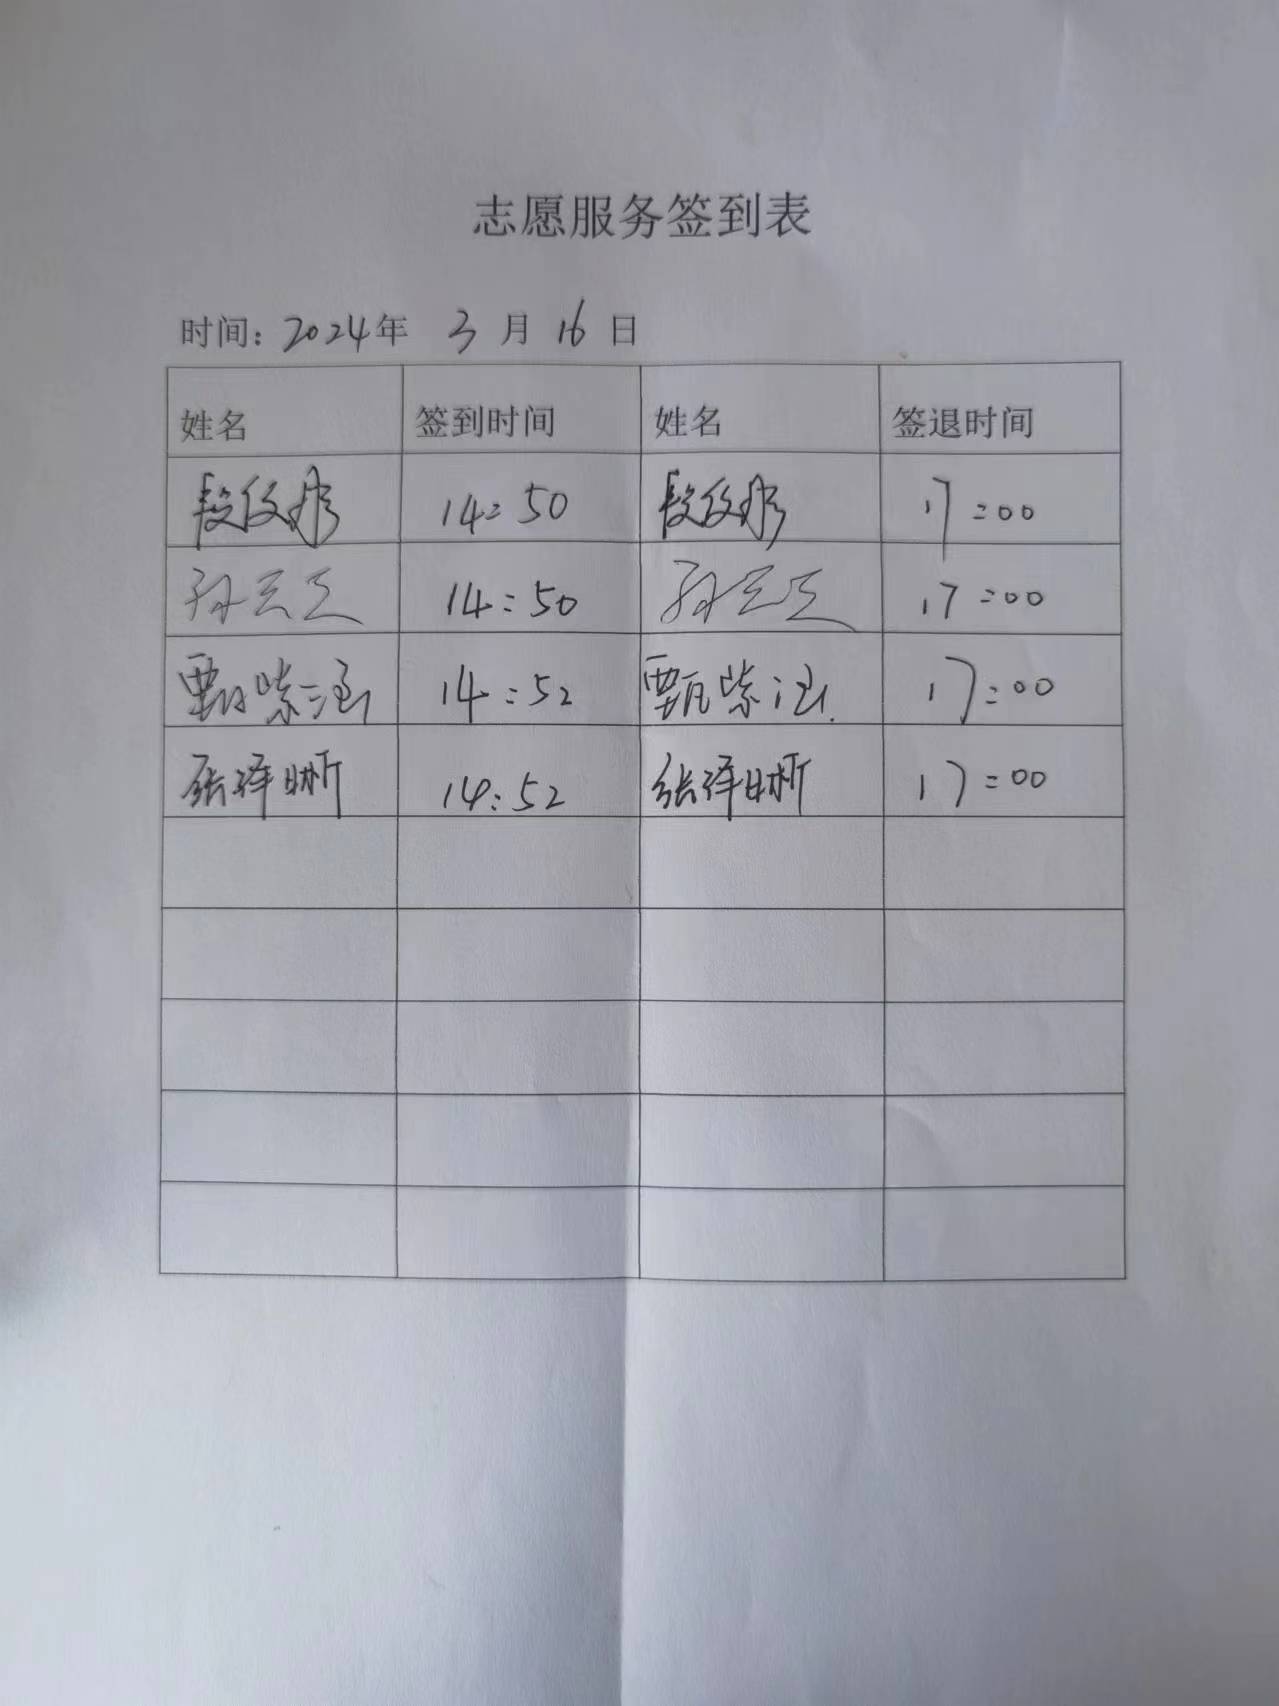 志愿服务签到表
时间: 2024年 3月16日
姓名 签到时间 姓名 签退时间
段 14:50 段 17:00
孙 14:50 孙 17:00
甄紫涵 14:52 甄紫涵 17:00
张泽晰 14:52 张泽晰 17:00